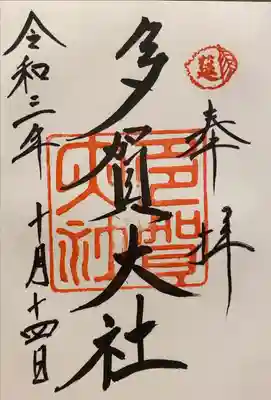 奉拝
多賀大社
多賀大社
令和三年 十月十四日